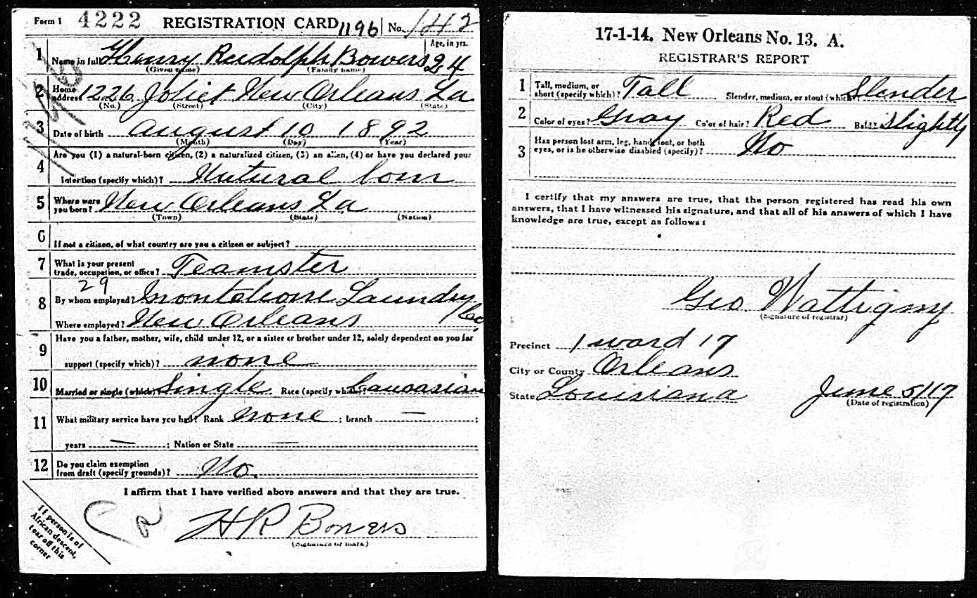 Form 1 4222 REGISTRATION CARD 1196 No. 142
1 Name in full Henry Rudolph Bowers Age, in yrs. 24
(Given name) (Family name)
2 Home address 1226 Joliet New Orleans La
(No.) (Street) (City) (State)
3 Date of birth August 10 1892
(Month) (Day) (Year)
4 Are you (1) a natural-born citizen, (2) a naturalized citizen, (3) an alien, (4) or have you declared your
intention (specify which)? Natural born
5 Where were you born? New Orleans La
(Town) (State) (Nation)
6 If not a citizen, of what country are you a citizen or subject?
7 What is your present trade, occupation, or office? Teamster
29
8 By whom employed? Montaleone Laundry Co
Where employed? New Orleans
9 Have you a father, mother, wife, child under 12, or a sister or brother under 12, solely dependent on you for
support (specify which)? none
10 Married or single (which)? Single Race (specify which)? Caucasian
11 What military service have you had? Rank none ; branch — ;
years — ; Nation or State —
12 Do you claim exemption from draft (specify grounds)? No.
I affirm that I have verified above answers and that they are true.
H R Bowers
(Signature or mark)
If person is of
African descent,
tear off this
corner
17-1-14. New Orleans No. 13. A.
REGISTRAR'S REPORT
1 Tall, medium, or short (specify which)? Tall Slender, medium, or stout (which)? Slender
2 Color of eyes? Gray Color of hair? Red Bald? Slightly
3 Has person lost arm, leg, hand, foot, or both
eyes, or is he otherwise disabled (specify)? No
I certify that my answers are true, that the person registered has read his own
answers, that I have witnessed his signature, and that all of his answers of which I have
knowledge are true, except as follows:
Geo Wattigny
(Signature of registrar)
Precinct 1 ward 17
City or County Orleans
State Louisiana June 5/17
(Date of registration)